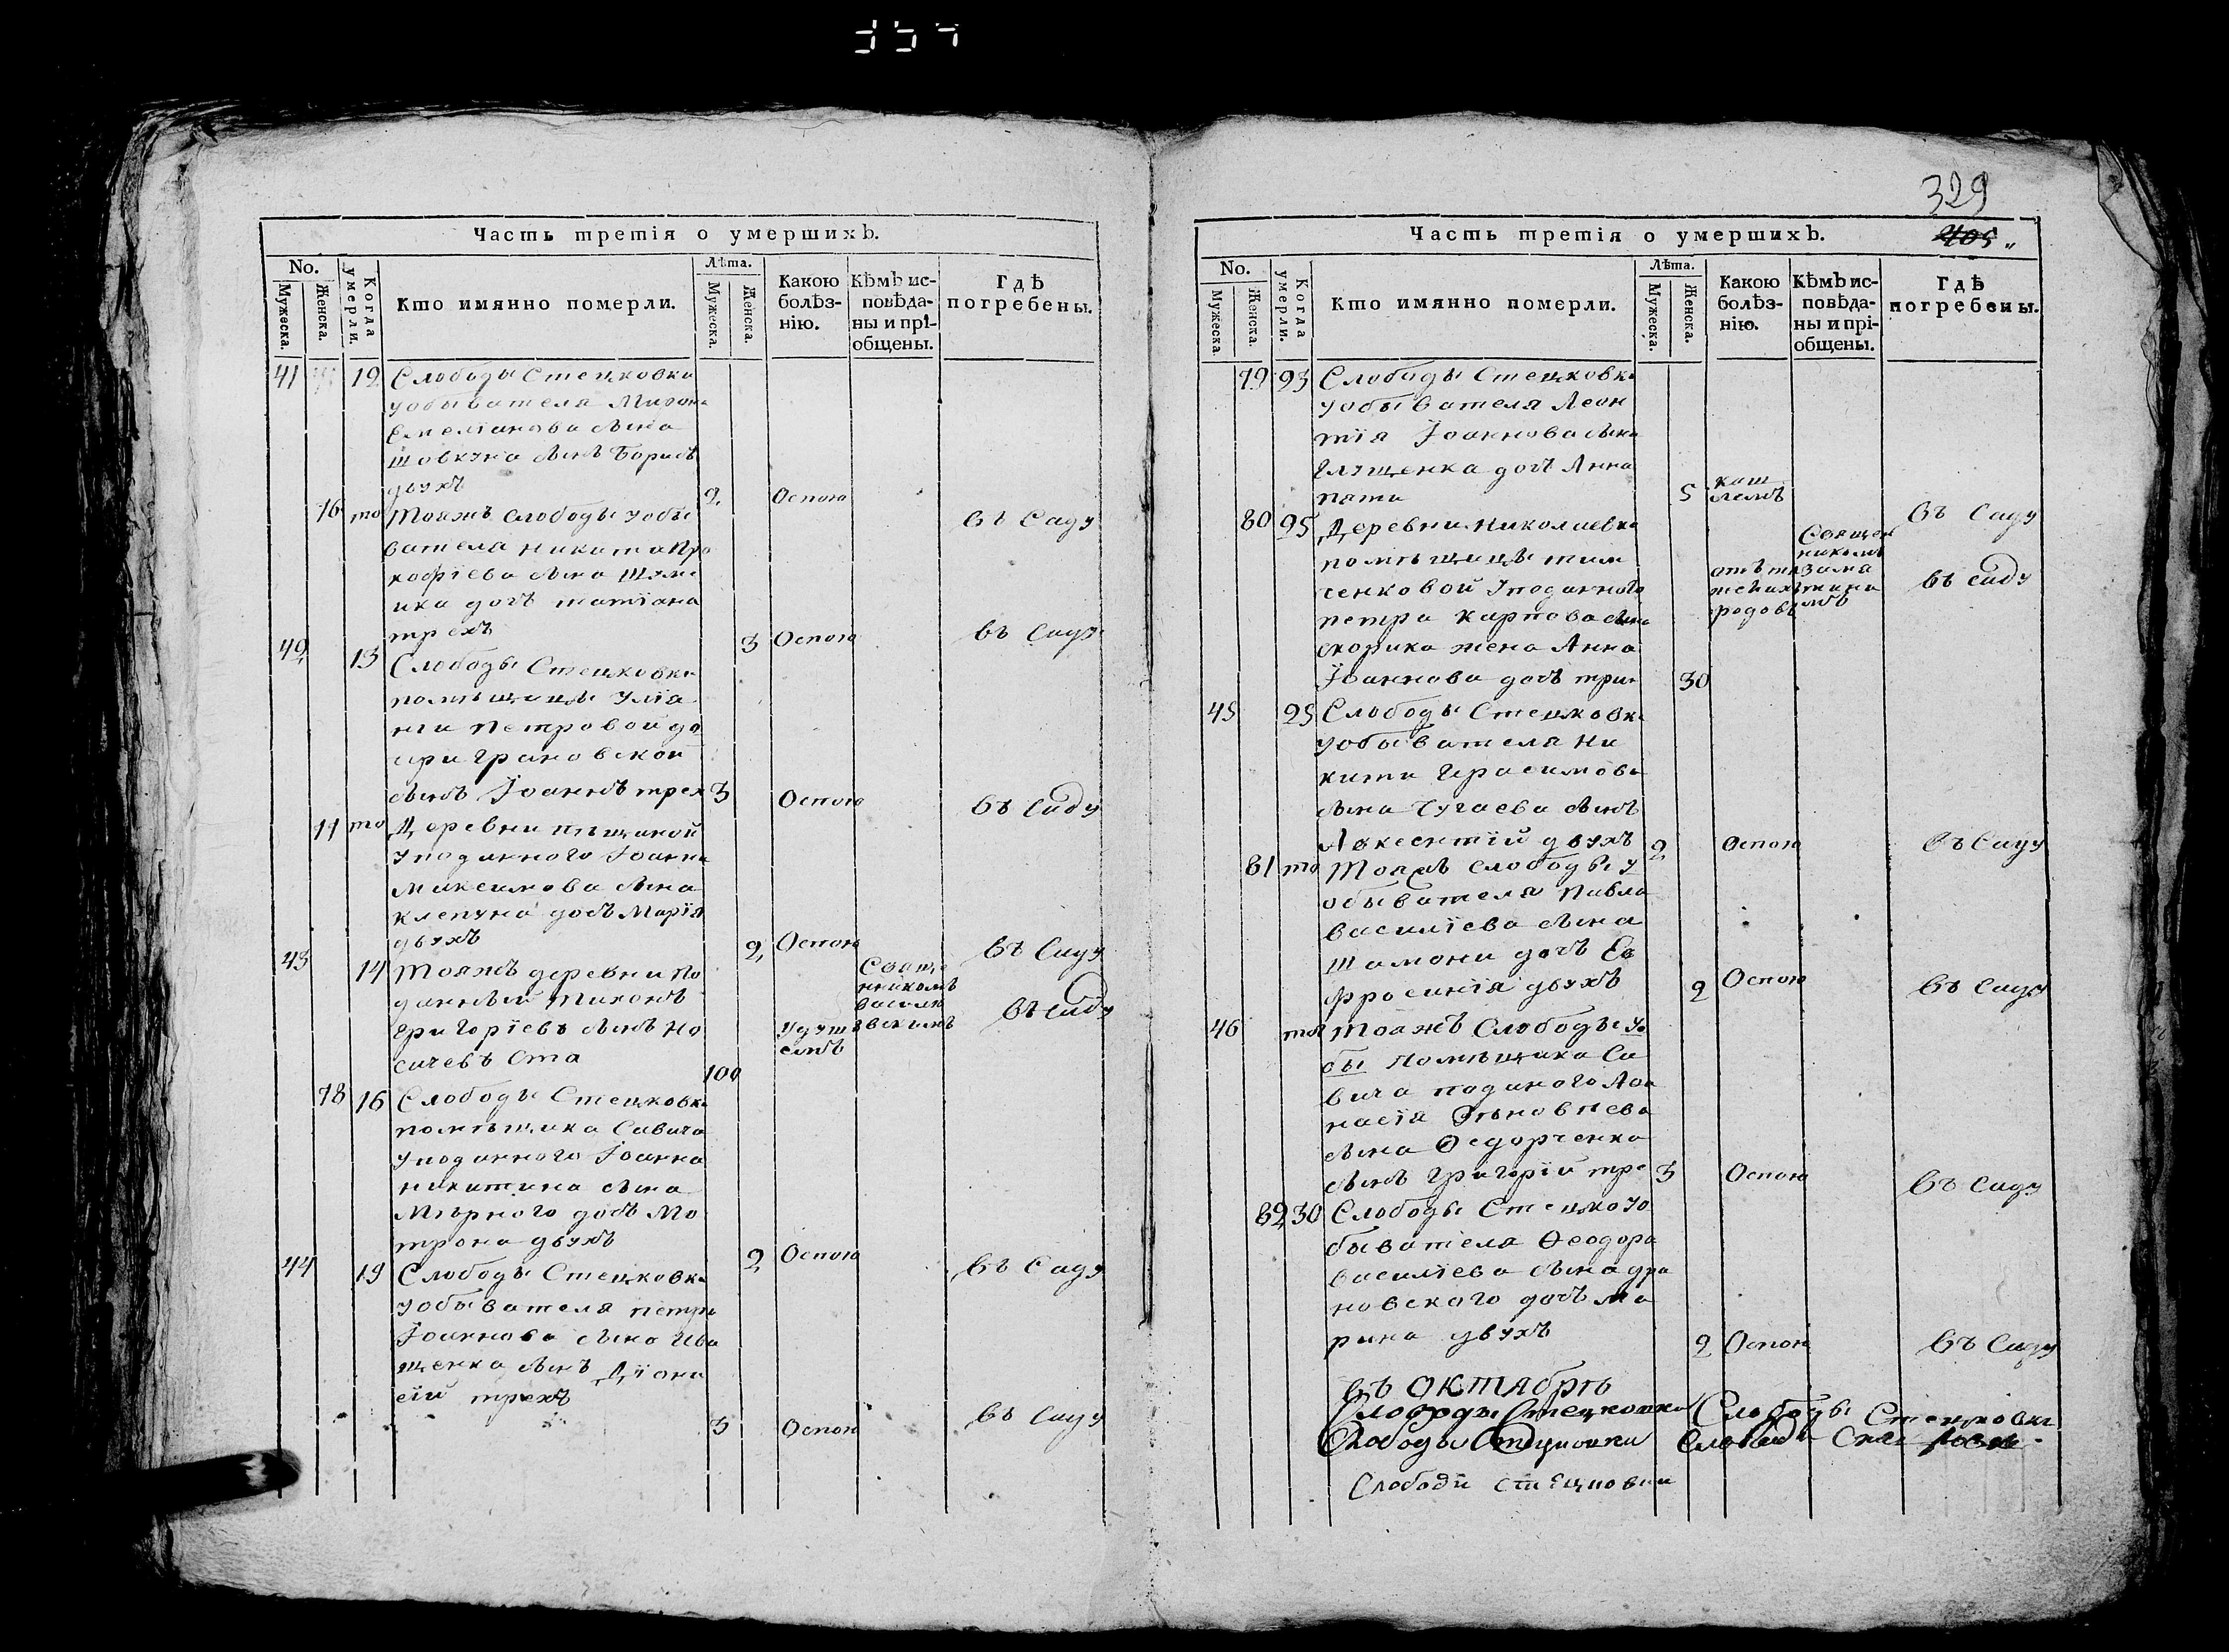 354
Часть третія о умершихъ.
No.
Мужеска.
Женска.
Когда умерли.
Кто имянно померли.
Лѣта.
Мужеска.
Женска.
Какою болѣз-нію.
Кѣмъ ис-повѣда-ны и прі-общены.
Гдѣ погребены.
41 12 Слободы Стецковки
уобывателя Мирона
Емеліанова сына
Шовкуна сынъ Борисъ
двухъ 2 Оспою въ саду
76 то Тояжъ слободы уобы
вателя Никиты Про
кофіева сына
дочъ татіана
трехъ 3 Оспою въ саду
42 13 Слободы Стецковки
помѣщицы Уліа
ніи Петровой до
сынъ Іоаннъ трех 3 Оспою въ саду
77 то Деревни пѣщаной
уподанного Іоанна
Максимова сына
Клепуна дочъ Марія
двухъ 2 Оспою въ саду
43 14 Тояжъ деревни по
данный Тихонъ
Григоріевъ сынъ Но
сачевъ Ста 100 въ саду
78 16 Слободы Стецковки
помѣщика Савича
уподанного Іоанна
никитина сына
Мѣрного дочъ Мо
трона двухъ 2 Оспою въ саду
44 19 Слободы Стецковки
уобывателя петра
Іоаннова сына Ива
щенка сынъ Діони
сій трехъ 3 Оспою въ саду
329
405
Часть третія о умершихъ.
No.
Мужеска.
Женска.
Когда умерли.
Кто имянно померли.
Лѣта.
Мужеска.
Женска.
Какою болѣз-нію.
Кѣмъ ис-повѣда-ны и прі-общены.
Гдѣ погребены.
79 23 Слободы Стецковки
уобывателя Леон
тія Іоаннова сына
Глущенка дочъ Анна
пяти 5 кашлемъ въ саду
80 25 Деревни Николаевки
помѣщицы тим
ченковой уподанного
петра Карпова сына
скорика жена Анна
Іоаннова дочъ три 30 родовъ въ саду
45 25 Слободы Стецковки
уобывателя Ни
киты Герасимова
сына Чугаева сынъ
Авксентій двухъ 2 Оспою въ саду
81 то Тояжъ слободы у
обывателя Павла
василіева сына
Шамони дочъ Ев
фросинія двухъ 2 Оспою въ саду
46 той Тояжъ Слободы уо
бы помѣщика Са
вича поданого Аѳа
насія Зѣновѣева
сына Ѳедорченка
сынъ Григорій тре 3 Оспою въ саду
82 30 Слободы Стецко уо
бывателя Ѳеодора
василіева сына дра
новского дочъ Ма
рина двухъ 2 Оспою въ саду
въ октябрѣ
Слободы Стецковки Слободы Стецковки
Слободы Стецковки
Слободы Стецковки